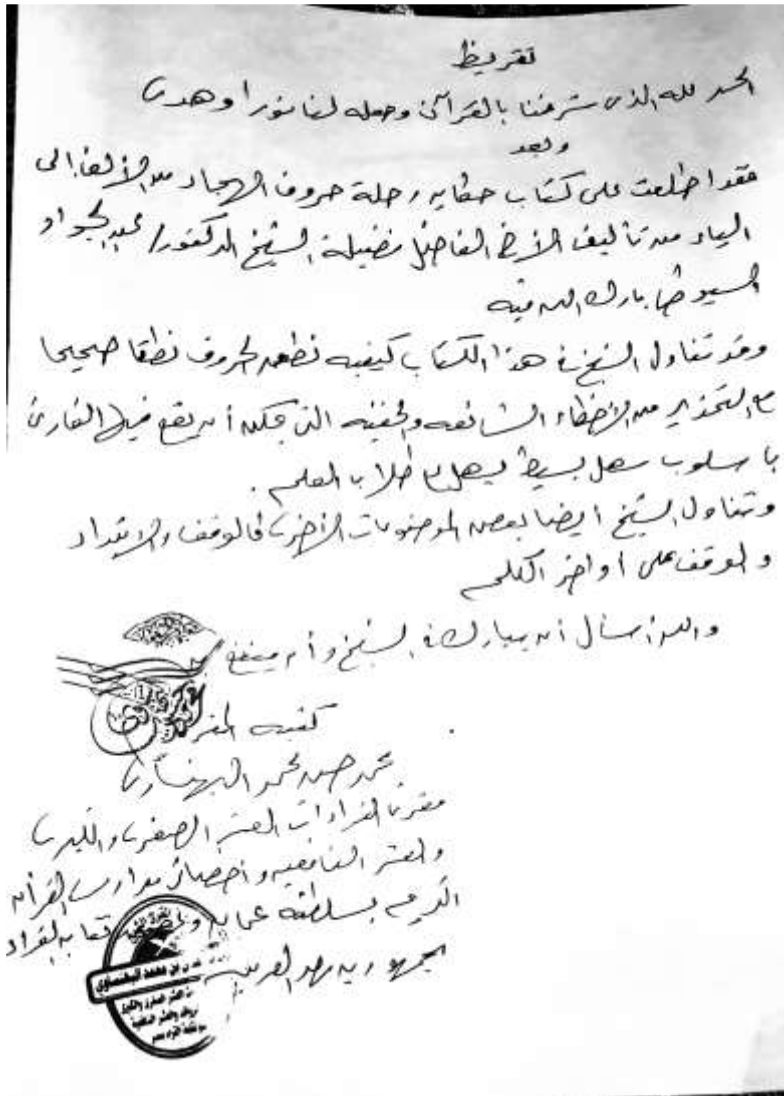 تقريظ
الحمد لله الذى شرفنا بالقرآن وجعله لنا نورا وهدى
وبعد
فقد اطلعت على كتاب حكاية رحلة حروف الهجاء من الألف إلى
الياء من تأليف الأخ الفاضل فضيلة الشيخ الدكتور/ عبد الجواد
السيوطى بارك الله فيه
وقد تناول الشيخ فى هذا الكتاب كيفيه نطق الحروف نطقا صحيحا
مع التحذير من الأخطاء الشائعه والخفيه التى يمكن أن يقع فيها القارئ
بأسلوب سهل بسيط يسهل على طلاب العلم.
وتناول الشيخ ايضا بعض الموضوعات الأخرى كالوقف والإبتداء
والوقف على أواخر الكلم
والله أسأل أن يبارك فى الشيخ وأن ينفع
كتبه المقرئ
محمد حسن محمد البهنساوى
مقرئ القراءات العشر الصغرى والكبرى
والعشر النافعيه و مدارس القرآن
الكريم بسلطنة عمان نقابه القراء
جمهوريه مصر العربيه
بن محمد البهنساوي
العشر الصغرى والكبرى
والعشر النافعية
نقابة القراء بمصر